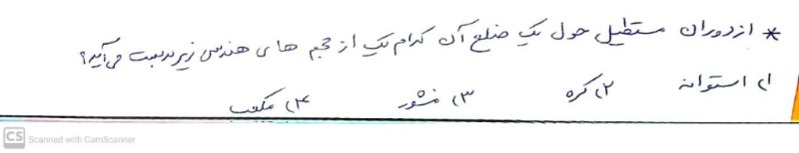 * از دوران مستطیل حول یک ضلع آن کدام یک از حجم های هندسی زیر بدست می آید؟
۱) استوانه ۲) کره ۳) منشور ۴) مکعب
CS Scanned with CamScanner